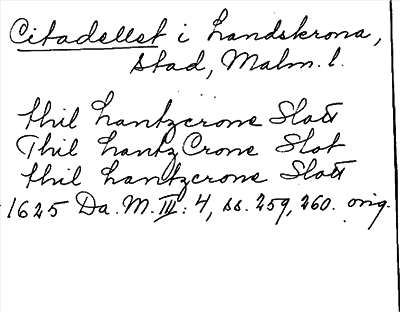 Citadellet i Landskrona,
stad, Malm. l.
thil Lantzcrone Slott
Thil Lantz Crone Slot
thil Lantzcrone Slott
1625 Da. M. III: 4, ss. 259, 260. orig.